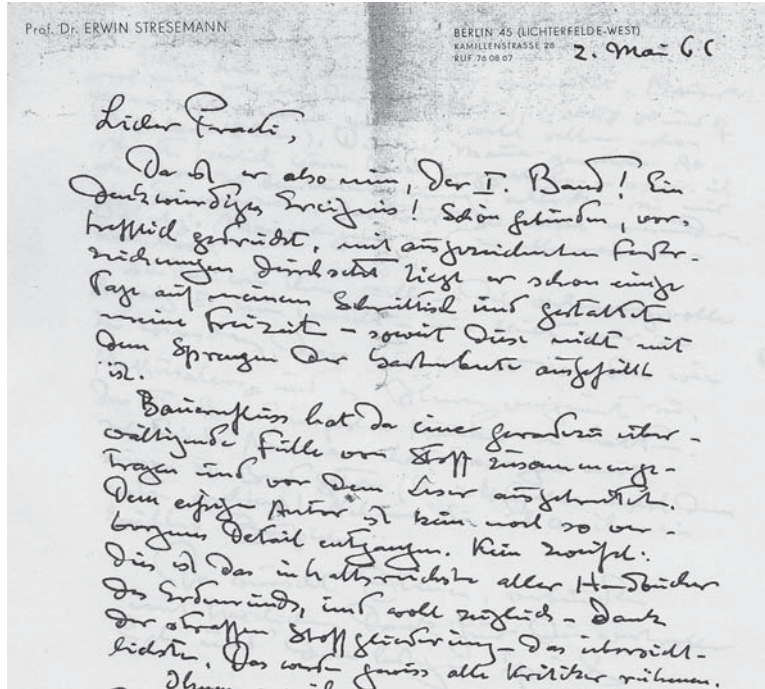 Prof. Dr. ERWIN STRESEMANN
BERLIN 45 (LICHTERFELDE-WEST)
KAMILLENSTRASSE 28
RUF 76 08 07
2. Mai 66
Lieber Fradi,
Da ist er also nun, der I. Band! Ein
denkwürdiges Ereignis! Schön gebunden, vor-
trefflich gedruckt, mit ausgezeichneten Feder-
zeichnungen durchsetzt liegt er schon einige
Tage auf meinem Schreibtisch und gestaltet
meine Freizeit – soweit diese nicht mit
dem Sprengen der Gartenbeete ausgefüllt
ist.
Bauernfluss hat da eine geradezu über-
wältigende Fülle von Stoff zusammenge-
tragen und vor dem Leser ausgebreitet.
Dem eifrigen Autor ist kein noch so ver-
borgenes Detail entgangen. Kein Zweifel:
Dies ist das inhaltsreichste aller Handbücher
des Erdenrunds, und wohl zugleich – Dank
der straffen Stoffgliederung – das übersicht-
lichste. Das werden gewiss alle Kritiker rühmen.